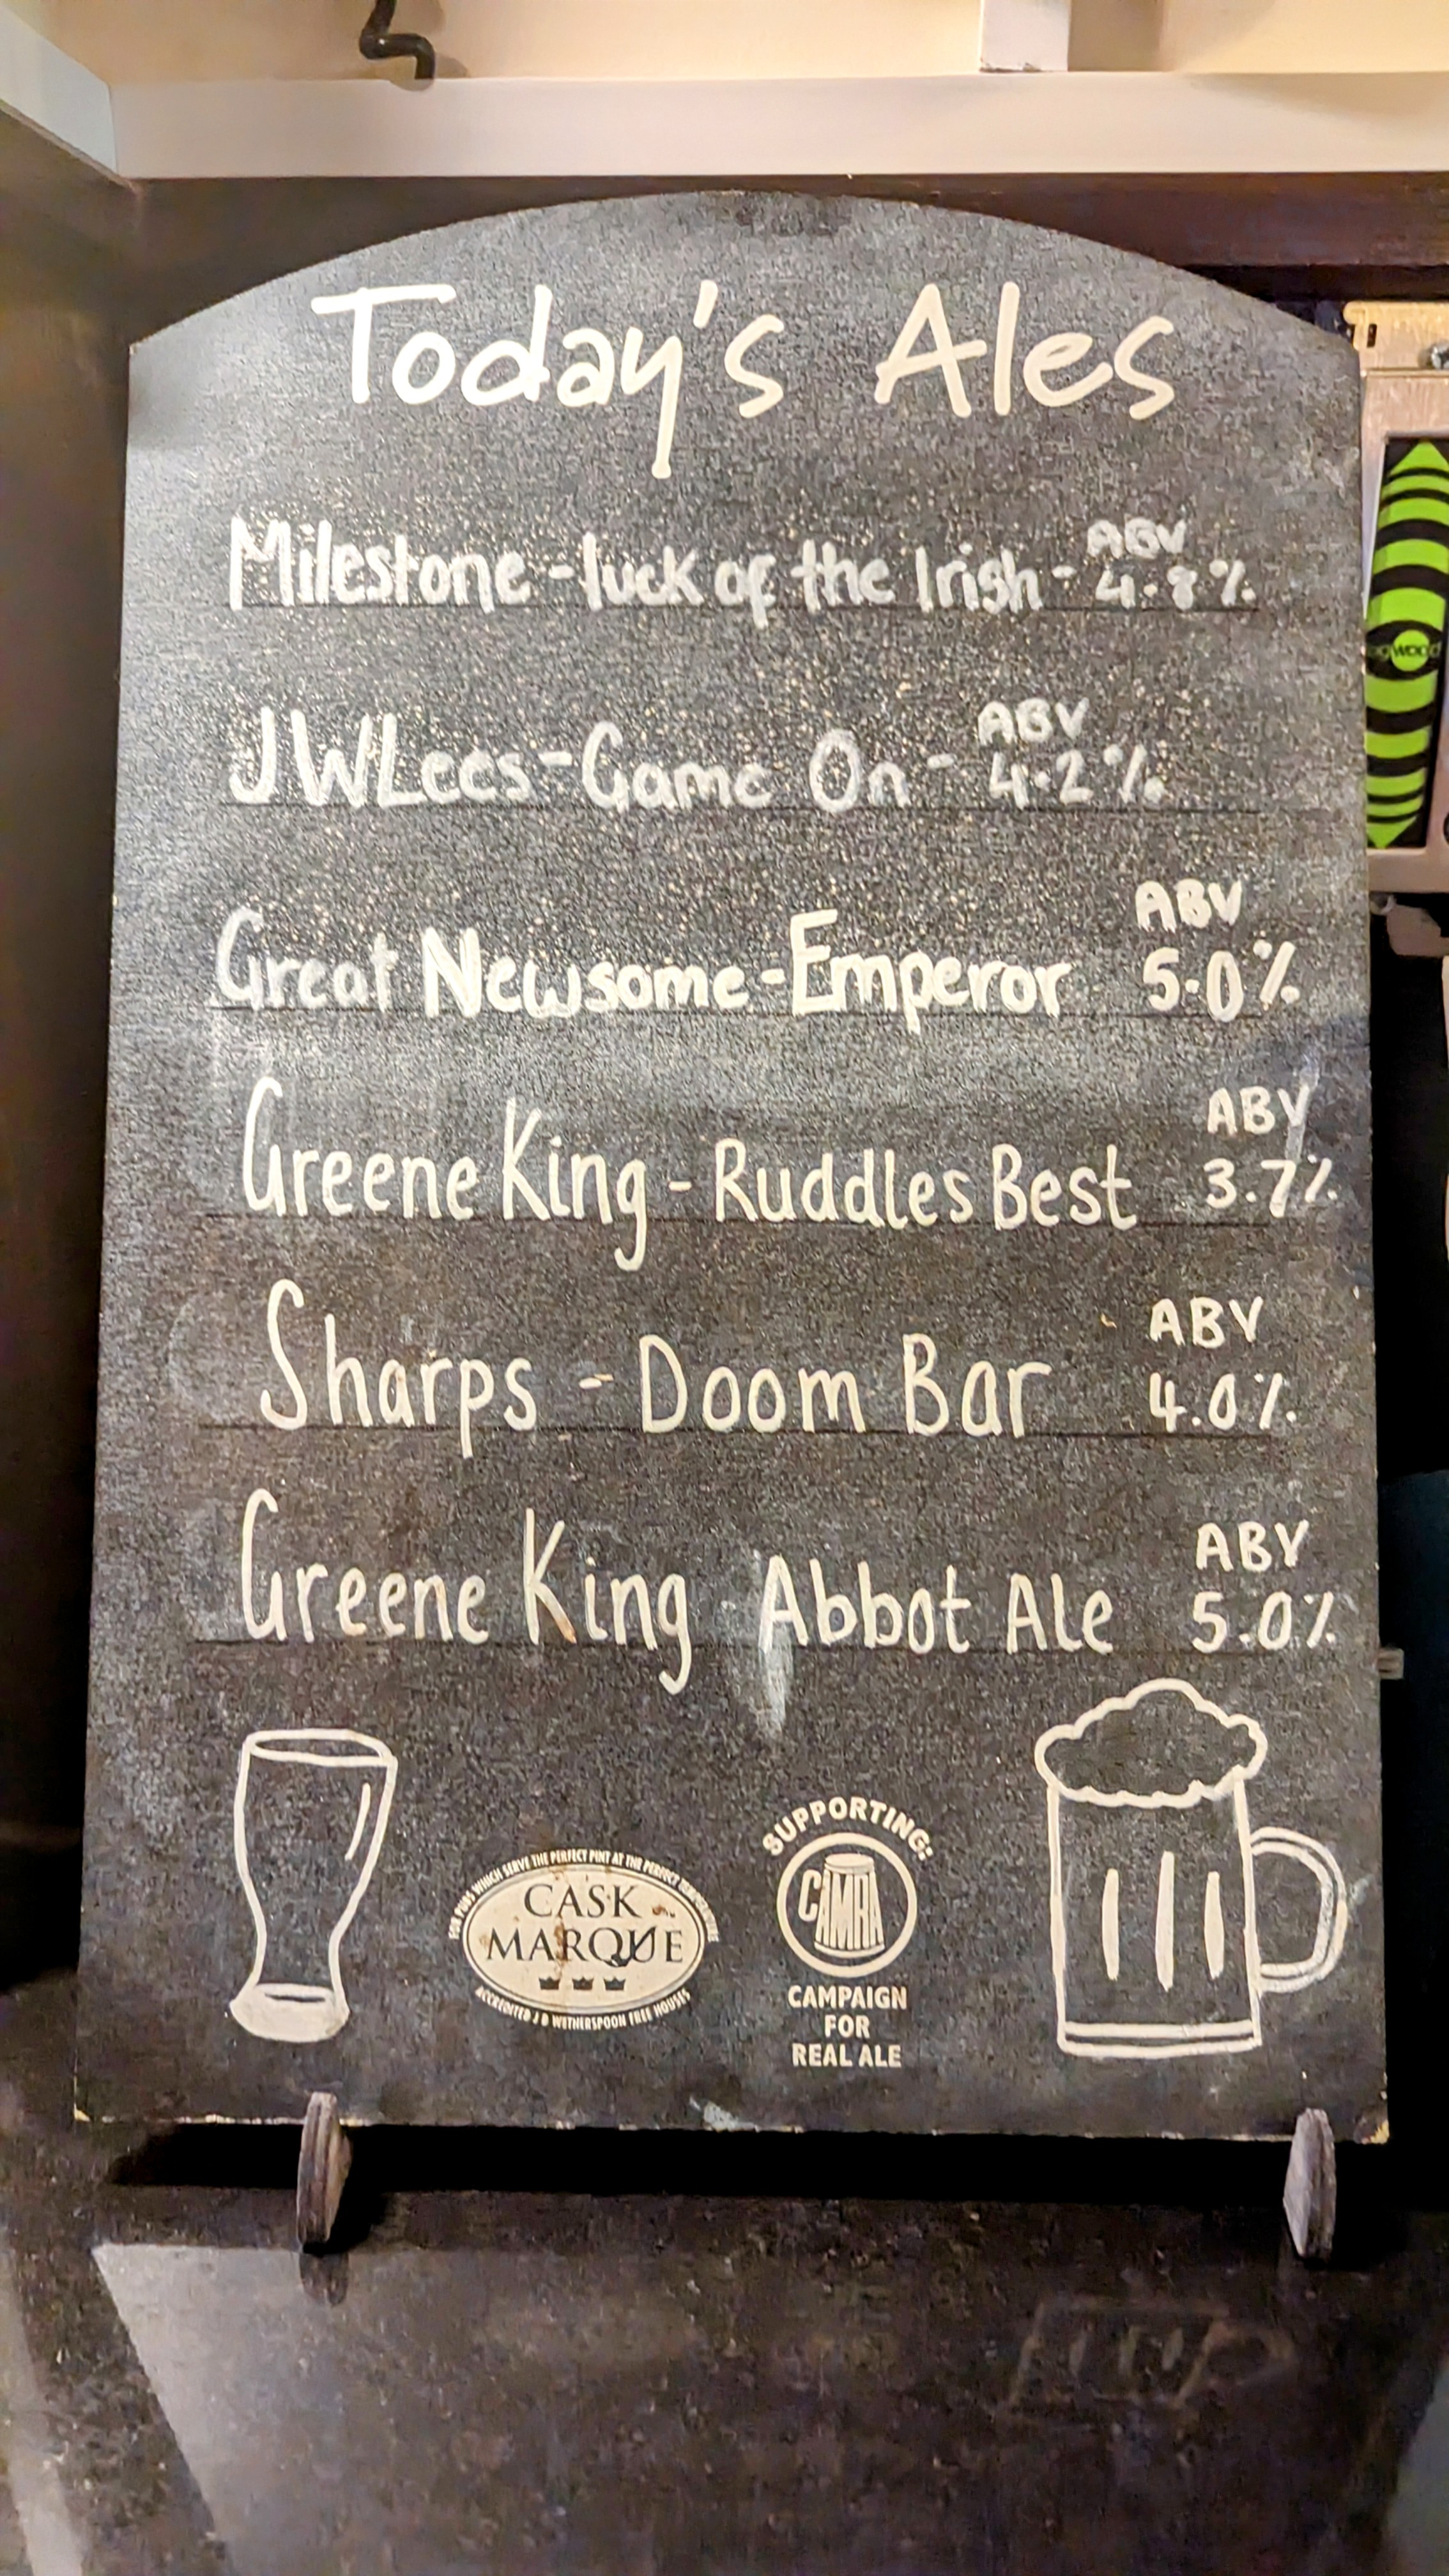 Today's Ales
Milestone - luck of the Irish - ABV 4.8%
JW Lees - Game On - ABV 4.2%
Great Newsome - Emperor ABV 5.0%
Greene King - Ruddles Best ABV 3.7%
Sharps - Doom Bar ABV 4.0%
Greene King Abbot Ale ABV 5.0%
FOR PUBS WHICH SERVE THE PERFECT PINT AT THE PERFECT
CASK
MARQUE
ACCREDITED J D WETHERSPOON FREE HOUSES
SUPPORTING:
CAMRA
CAMPAIGN
FOR
REAL ALE